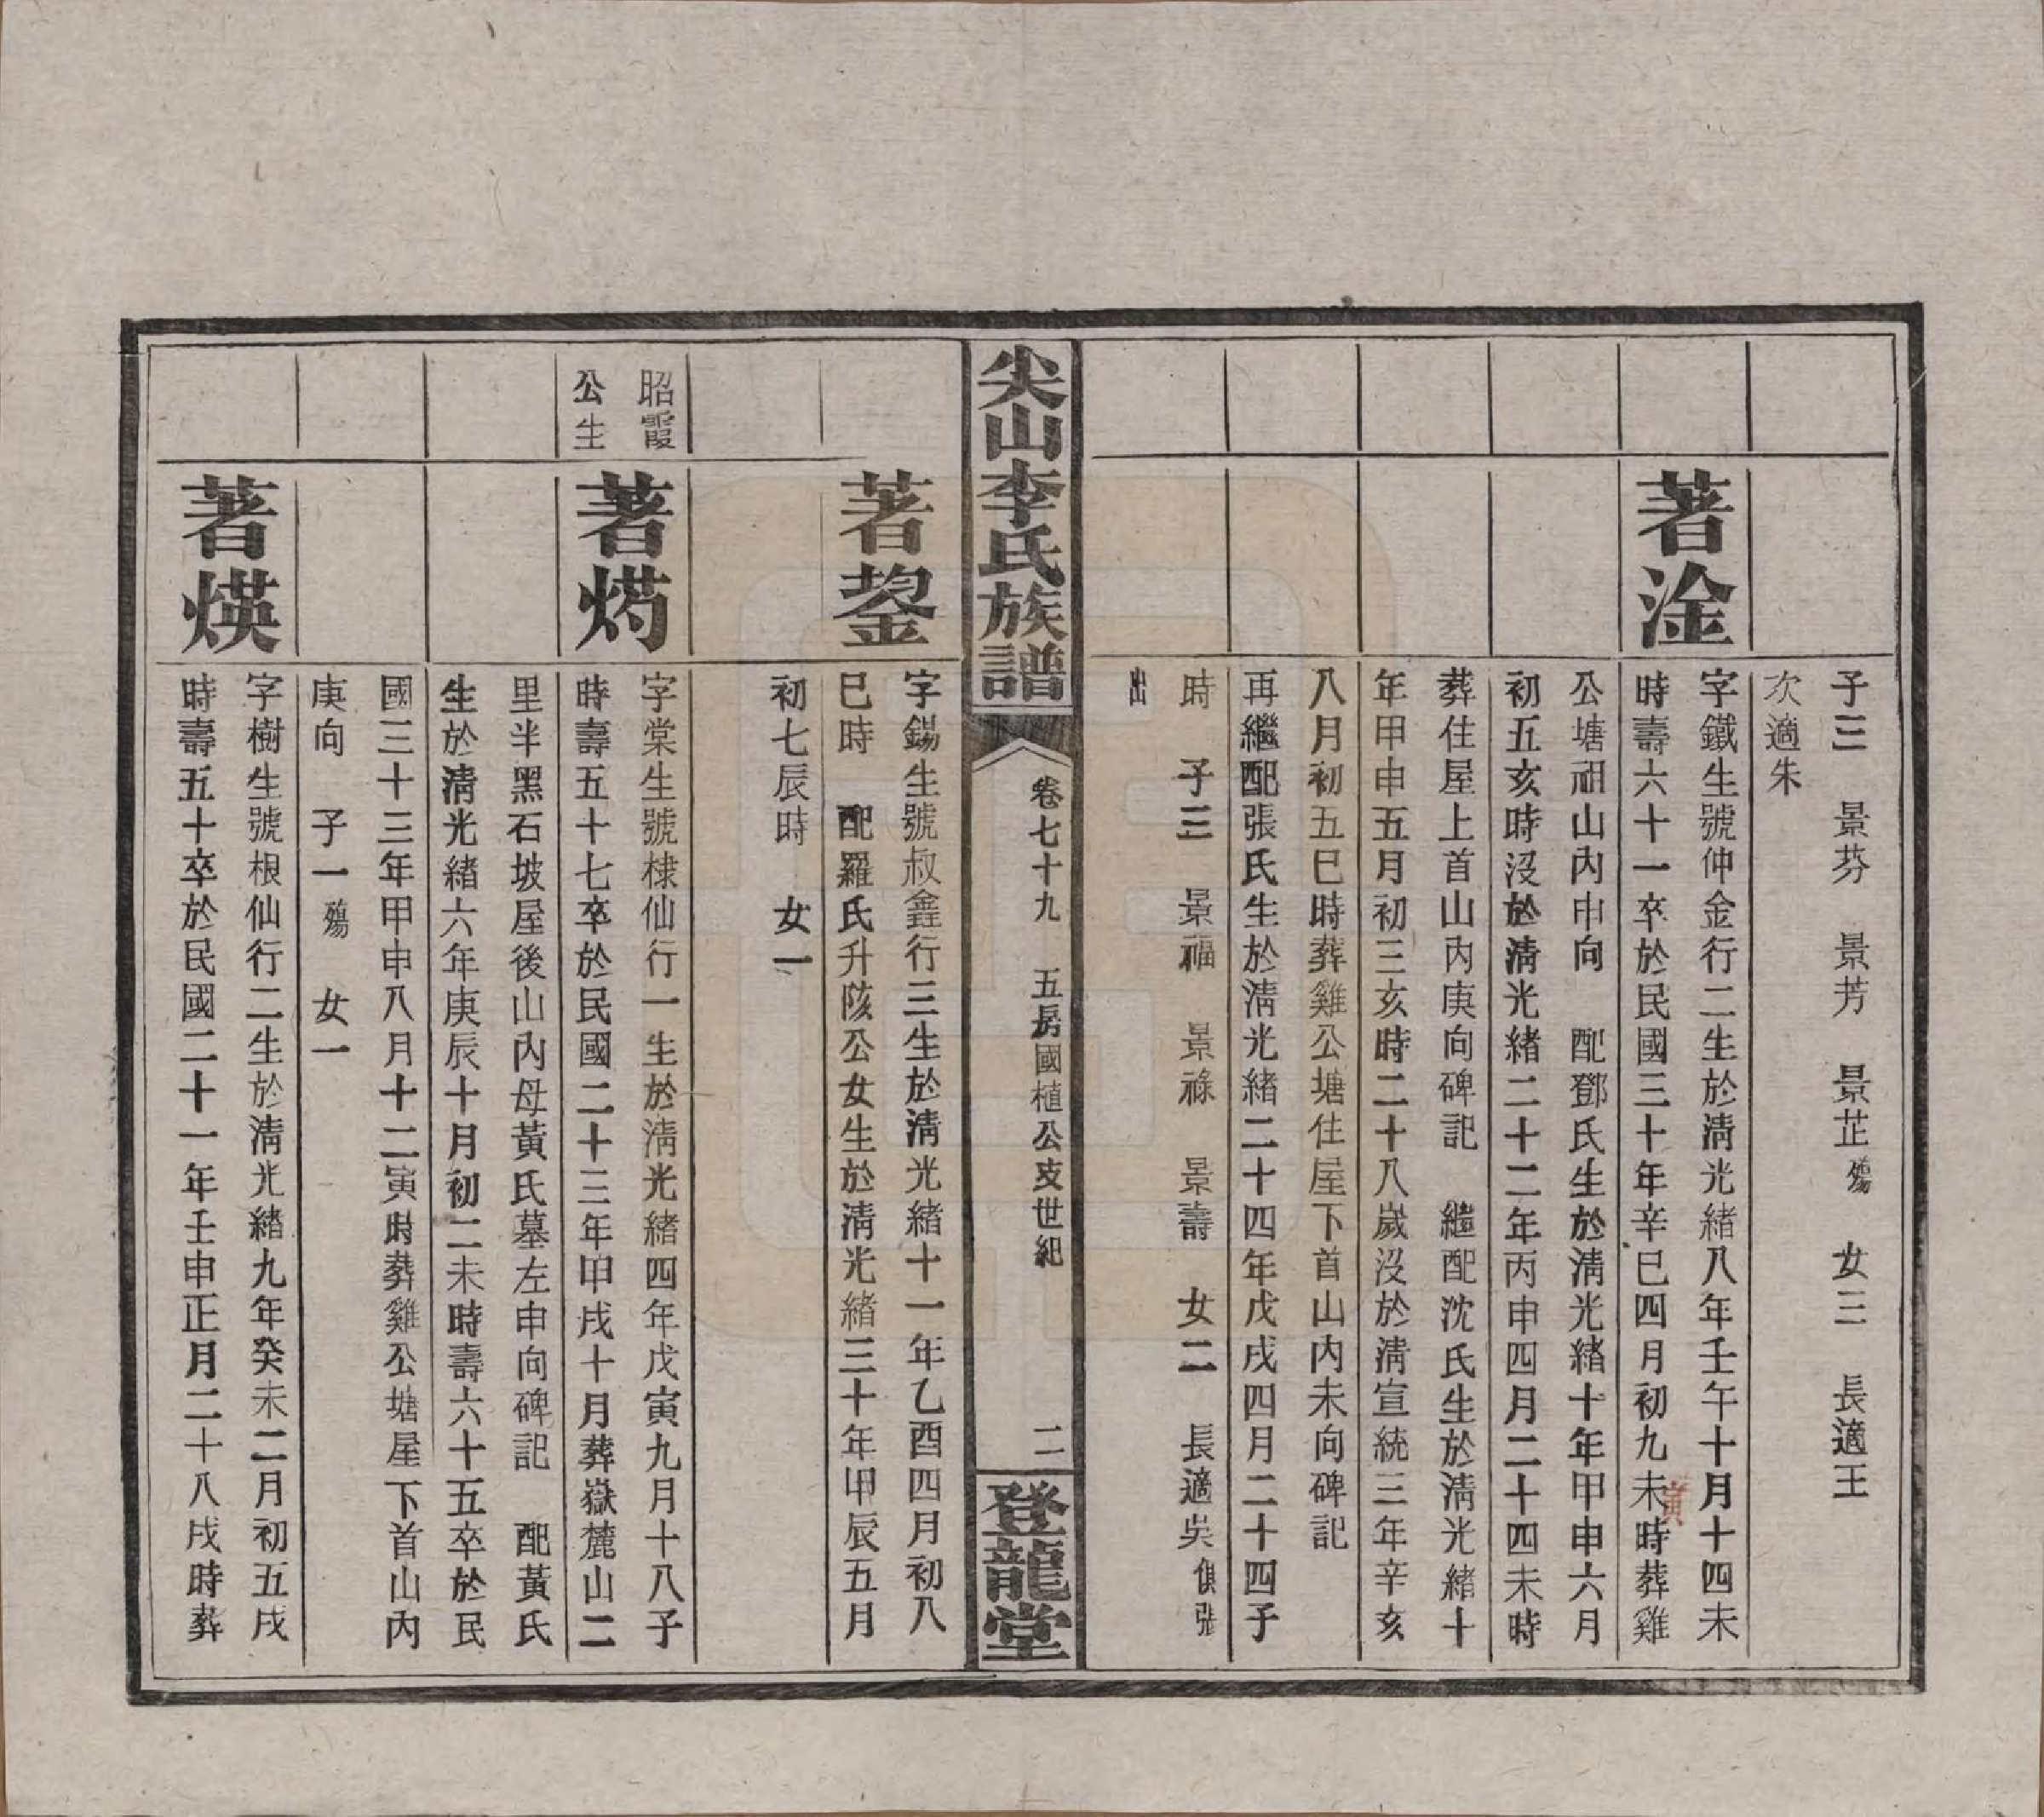 子三　景芬　景芳　景芷殤　女三　長適王
次適朱
著淦
字鐵生號仲金行二生於淸光緖八年壬午十月十四未
時壽六十一卒於民國三十年辛巳四月初九未時葬雞
寅
公塘祖山內申向　配鄧氏生於淸光緖十年甲申六月
初五亥時沒於淸光緖二十二年丙申四月二十四未時
葬住屋上首山內庚向碑記　繼配沈氏生於淸光緖十
年甲申五月初三亥時二十八歲沒於淸宣統三年辛亥
八月初五巳時葬雞公塘住屋下首山內未向碑記
再繼配張氏生於淸光緖二十四年戊戌四月二十四子
時　子三　景福　景祿　景壽　女二　長適吳俱張
出
尖山李氏族譜
卷七十九　五房國植公支世紀
二
登龍堂
著鋆
字錫生號叔鑫行三生於淸光緖十一年乙酉四月初八
巳時　配羅氏升陔公女生於淸光緖三十年甲辰五月
初七辰時　女一
昭霞
公生
著焬
字棠生號棣仙行一生於淸光緖四年戊寅九月十八子
時壽五十七卒於民國二十三年甲戌十月葬嶽麓山二
里半黑石坡屋後山內母黃氏墓左申向碑記　配黃氏
生於淸光緖六年庚辰十月初二未時壽六十五卒於民
國三十三年甲申八月十二寅時葬雞公塘屋下首山內
庚向　子一殤　女一
著煐
字樹生號根仙行二生於淸光緖九年癸未二月初五戌
時壽五十卒於民國二十一年壬申正月二十八戌時葬